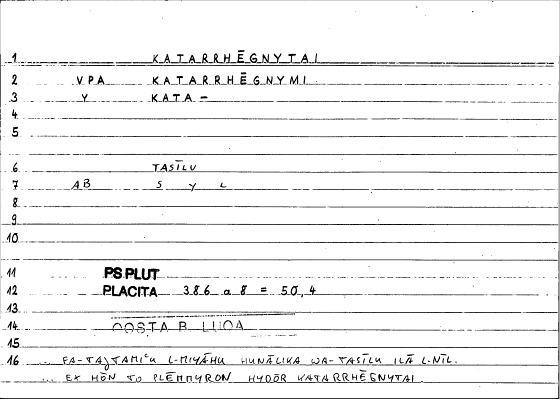 1 KATARRHĒGNYTAI
2 VPA KATARRHĒGNYMI
3 Y KATA-
4
5
6 TASĪLU
7 AB S Y L
8
9
10
11 PS PLUT
12 PLACITA 386 a 8 = 50, 4
13
14 QOSTA B. LUQA
15
16 ... FA-TAǦTAMIʿU L-MIYĀHU HUNĀLIKA WA-TASĪLU ILĀ L-NĪL.
... EX HŌN TO PLĒMMYRON HYDŌR KATARRHĒGNYTAI.